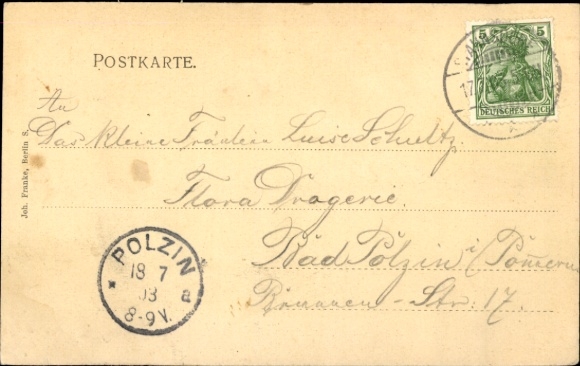 POSTKARTE.
5 5
DEUTSCHES REICH
17.
An
Das kleine Fräulein Luise Schultz.
Flora Drogerie.
Bad Polzin i/Pommern
Brunnen-Str: 17.
POLZIN
18 7
03
* a
8-9V.
Joh. Franke, Berlin S.